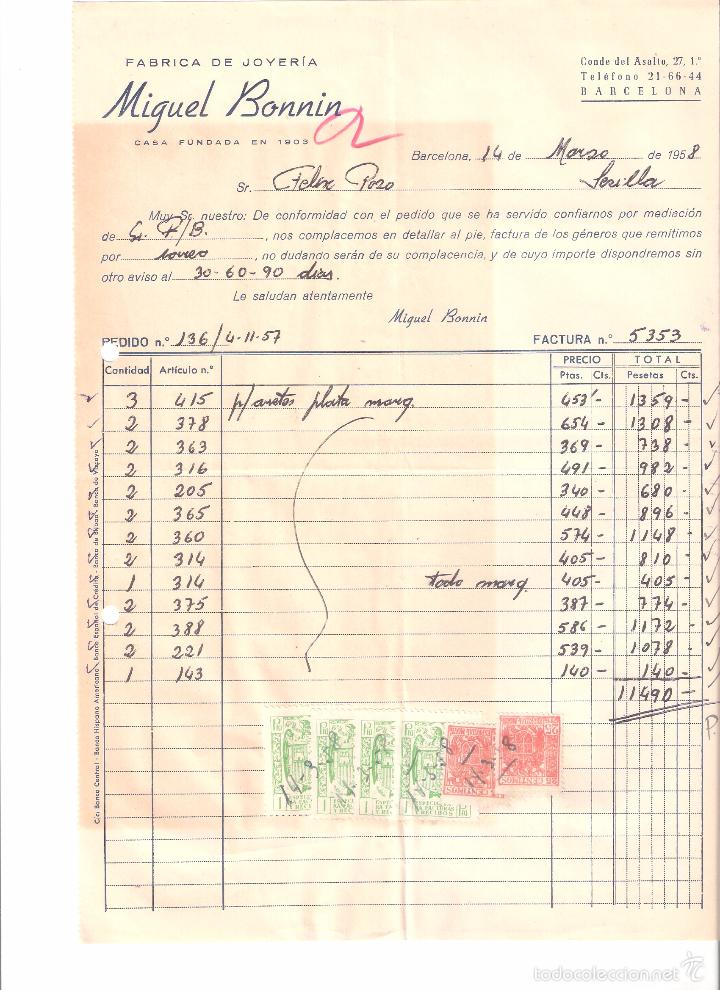 FABRICA DE JOYERÍA
Miguel Bonnin
CASA FUNDADA EN 1903
Conde del Asalto, 27, 1.º
Teléfono 21-66-44
BARCELONA
Barcelona, 14 de Marzo de 1958
Sr. Felix Pozo Sevilla
Muy Sr. nuestro: De conformidad con el pedido que se ha servido confiarnos por mediación
de Sr. P/B. , nos complacemos en detallar al pie, factura de los géneros que remitimos
por correo , no dudando serán de su complacencia, y de cuyo importe dispondremos sin
otro aviso al 30-60-90 dias.
Le saludan atentamente
Miguel Bonnin
PEDIDO n.º 136/4-11-57 FACTURA n.º 5353
Cantidad Artículo n.º PRECIO TOTAL
Ptas. Cts. Pesetas Cts.
3 415 p/ aretes plata marq. 453'- 1359-
2 378 654- 1308-
2 363 369- 738-
2 316 491- 982-
2 205 340- 680-
2 365 448- 896-
2 360 574- 1148-
2 314 405- 810-
1 314 todo marq. 405- 405-
2 375 387- 774-
2 388 586- 1172-
2 221 539- 1078-
1 143 140- 140-
11490-
P.
C/c: Banco Central - Banco Hispano Americano - Banco Español de Crédito - Banco de Bilbao - Banco de Vizcaya
14-3-58
ESPECIAL
PARA FACTURAS
Y RECIBOS
1 Pta
25 CENTIMOS
todocoleccion.net